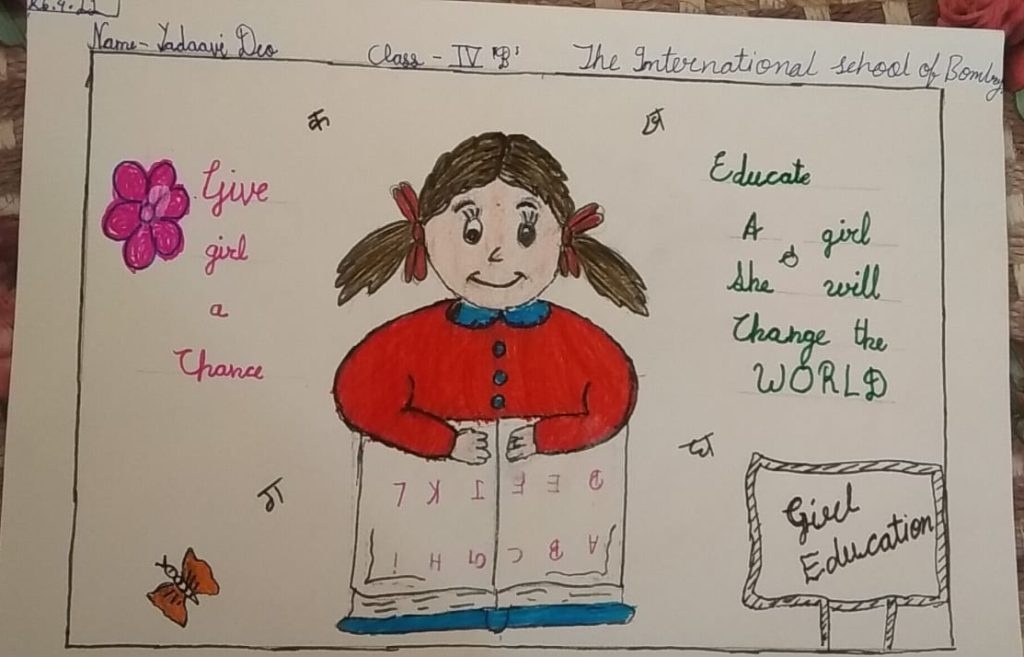 Name- Yadaavi Deo Class - IV 'B' The International School of
क
Give
girl
a
Chance
Educate
A girl
She will
Change the
WORLD
ग
घ
A B C G H i
D E F J K L
Girl
Education